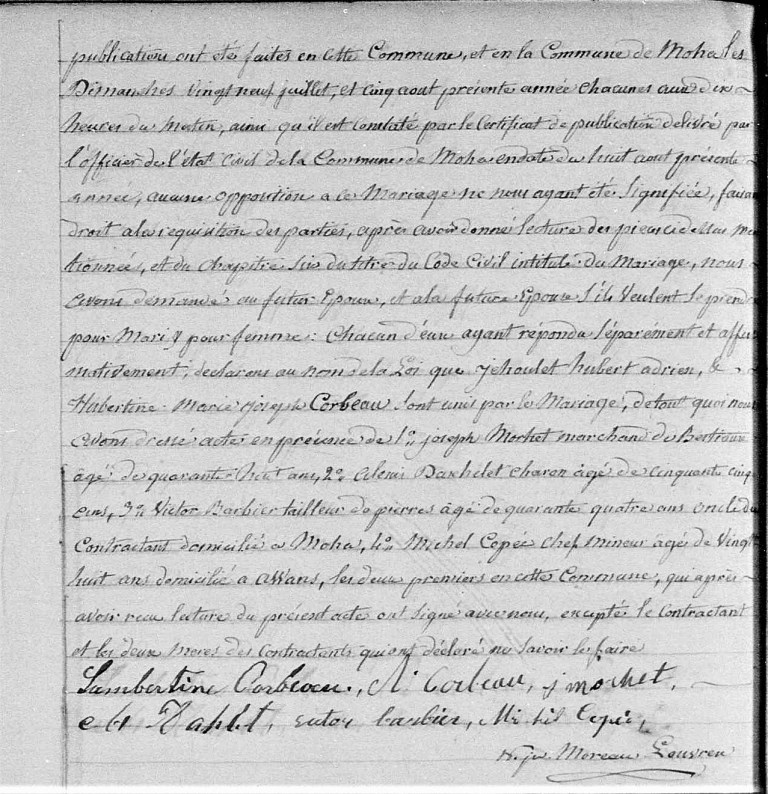 publication ont été faites en cette Commune, et en la Commune de Moha les
Dimanches vingt neuf juillet, et cinq aout présente année chacunes aux dix
heures du Matin, ainsi qu'il est constaté par le Certificat de publication délivré par
l'officier de l'état civil de la Commune de Moha en date du huit aout présente
année, aucune opposition a ce Mariage ne nous ayant été Signifiée, faisan
droit a la réquisition des parties, après avoir donné lecture des pieces ci dessus men
tionnée, et du Chapitre Six du titre du Code Civil intitulé du Mariage, nous
avons demandé au futur Epoux, et a la future Epouse S'ils Veulent Se prend
pour Mari & pour femme: Chacun d'eux ayant répondu Séparément et affir
mativement, declarons au nom de la Loi que jehoulet hubert adrien, &
Hubertine Marie joseph Corbeau Sont unis par le Mariage, de tout quoi nous
avons dressé acte en présence de 1° joseph Mochet marchand
âgé de quarante huit ans, 2° charon âgé de cinquante cinq
ans, 3° Victor Barbier tailleur de pierres âgé de quarante quatre ans oncle du
Contractant domicilié a Moha, 4° Michel Cepée chef mineur agée de Vingt
huit ans domicilié a aWans, les deux premiers en cette Commune, qui après
avoir recu lecture du présent acte ont signé avec nous, excepté le Contractant
et les deux meres des Contractants qui ont déclaré ne Savoir le faire
Lambertine Corbeau, Corbeau, j mochet,
barbier, Cepée,
Moreau Louvren